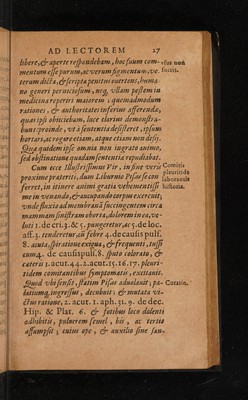 AD LECTOREM 27
libere, & aperte respondebam, hoc suum com-
mentum esse purum, ac verum figmentum, ve
terum dicta, & scripta penitus euertens, huma-
no generi perniciosum, neq; vllam pestem in
medicina reperiri maiorem: quemadmodum
rationes, & authoritates inferius afferendæ,
quas ipsi obiiciebam, luce clarius demonstra-
bunt: proinde, vt à sententia desisteret, ipsum
hortari, ac rogare etiam, atque etiam non desii.
Quæ quidem ipse omnia non ingrato animo,
sed obstinatione quadam sententia repudiabat.
Cum ecce Illustrissimus Vir, in fine vere
proxime præteriti, dum Liburno Pisas se con
ferret, in itinere animi gratia vehementissi
me in venando, & aucupando corpus exercuit;
vnde fluxio ad membranã succingentem circa
mammam sinistram oborta, dolorem in ea, ve-
luti 1. de ct. 3. & 5. pungeret, ac 5. de loc.
aff. 4. tenderetur, an febre 4. de causis puls.
8. acuta, spiratione exigua, & frequenti, tussi
cum 4. de causis puls. 8. sputo colorato, &
cæteris 1. acut. 44. 2. acut. 15. 16. 17. pleuri-
tidem comitantibus symptomatis, excitauit.
Quod vbi sensit, statim Pisas aduolauit; pa-
latiumq; ingressus, decubuit; & mutata vi-
ctus ratione, 2. acut. 1. aph. 31. 9. de dec.
Hip. & Plat. 6. & fotibus loco dolenti
adhibitis, puluerem semel, bis, ac tertio
assumpsit; cuius ope, & auxilio sine san-
esse non
fueriti.
Comitis
pleuritide
laborantis
historia.
Curatio.